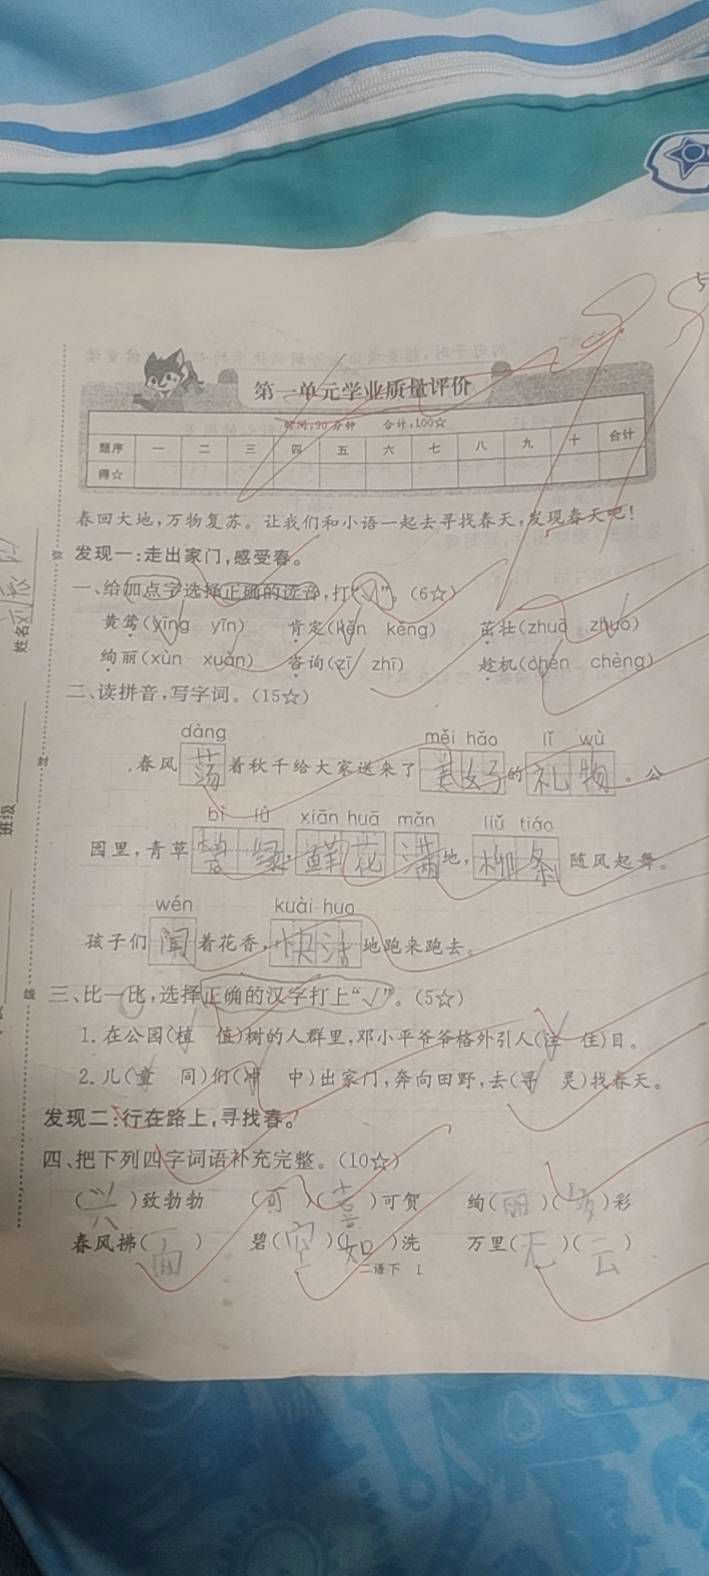 第一单元学业质量评价
时间:90分钟 合计:100☆
题序 一 二 三 四 五 六 七 八 九 十 合计
得☆
春回大地,万物复苏。让我们和小语一起去寻找春天,发现春天吧!
发现一:走出家门,感受春。
一、给加点字选择正确的读音,打“√”。(6☆)
黄莺(yīng yīn) 肯定(kěn kěng) 茁壮(zhuā zhuó)
绚丽(xùn xuàn) 咨询(zī zhī) 趁机(chèn chèng)
二、读拼音,写字词。(15☆)
dàng měi hǎo lǐ wù
春风荡着秋千给大家送来了美好的礼物。公
bì lǜ xiān huā mǎn liǔ tiáo
园里,青草碧绿,鲜花满地,柳条随风起舞。
wén kuài huo
孩子们闻着花香,快活地跑来跑去。
三、比一比,选择正确的汉字打上“√”。(5☆)
1. 在公园(植 值)树的人群里,邓小平爷爷格外引人(注 住)目。
2. 儿(童 同)们(冲 中)出家门,奔向田野,去(寻 灵)找春天。
发现二:行在路上,寻找春。
四、把下列四字词语补充完整。(10☆)
(兴)致勃勃 (可)(喜)可贺 绚(丽)(多)彩
春风拂(面) 碧(空)(如)洗 万里(无)(云)
二语下 1
姓名
班级
弥
封
线